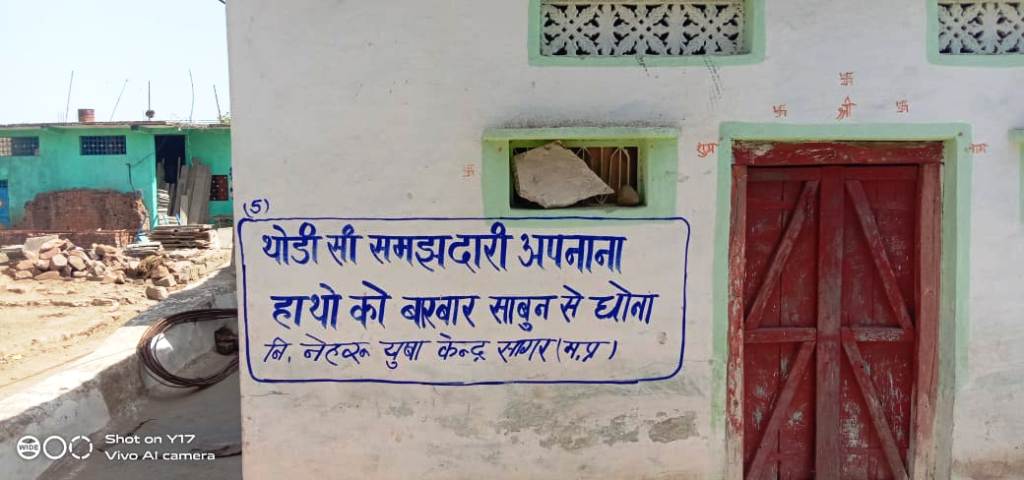 श्री
शुभ
लाभ
(5)
थोडी सी समझदारी अपनाना
हाथो को बारबार साबुन से धोना
नि. नेहरू युबा केन्द्र सागर (म.प्र)
Shot on Y17
Vivo AI camera